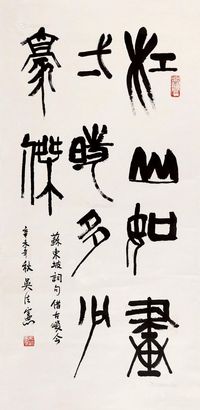 江山如畫
一時多少
豪傑
蘇東坡詞句 借古頌今
辛未年秋 吳法憲